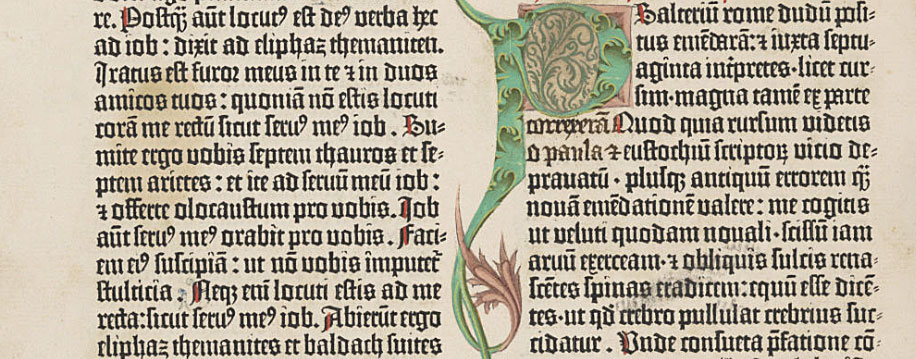 re. Postq̃ aūt locutꝰ est deꝰ verba hec
ad iob : dixit ad eliphaz themaniten.
Iratus est furor meus in te ⁊ in duos
amicos tuos : quoniā nō estis locuti
corā me rectū sicut seruꝰ meꝰ iob . Su-
mite ergo vobis septem thauros et se-
ptem arietes : et ite ad seruū meū iob :
⁊ offerte olocaustum pro vobis. Iob
aūt seruꝰ meꝰ orabit pro vobis . Faci-
em eiꝰ suscipiā : ut nō vobis imputet̃
stulticia . Neqꝫ em̄ locuti estis ad me
recta : sicut seruꝰ meꝰ iob. Abierūt ergo
eliphaz themanites et baldach suites
Psalteriū rome dudū posi-
tus emēdarā : ⁊ iuxta septu-
aginta int̃pretes · licet cur-
sim · magna tamē ex parte
correxerā Quod quia rursum videtis
o paula ⁊ eustochiū scriptoꝝ vicio de-
prauatū · plusqꝫ antiquū errorem q̃ꝫ
nouā emēdationē valere : me cogitis
ut veluti quodam nouali · scissū iam
aruū exerceam · ⁊ obliquis sulcis rena-
scētes spinas eradicem : equū esse dicē-
tes · ut qd̃ crebro pullulat crebrius suc-
cidatur . Vnde consueta p̄fatione cō-